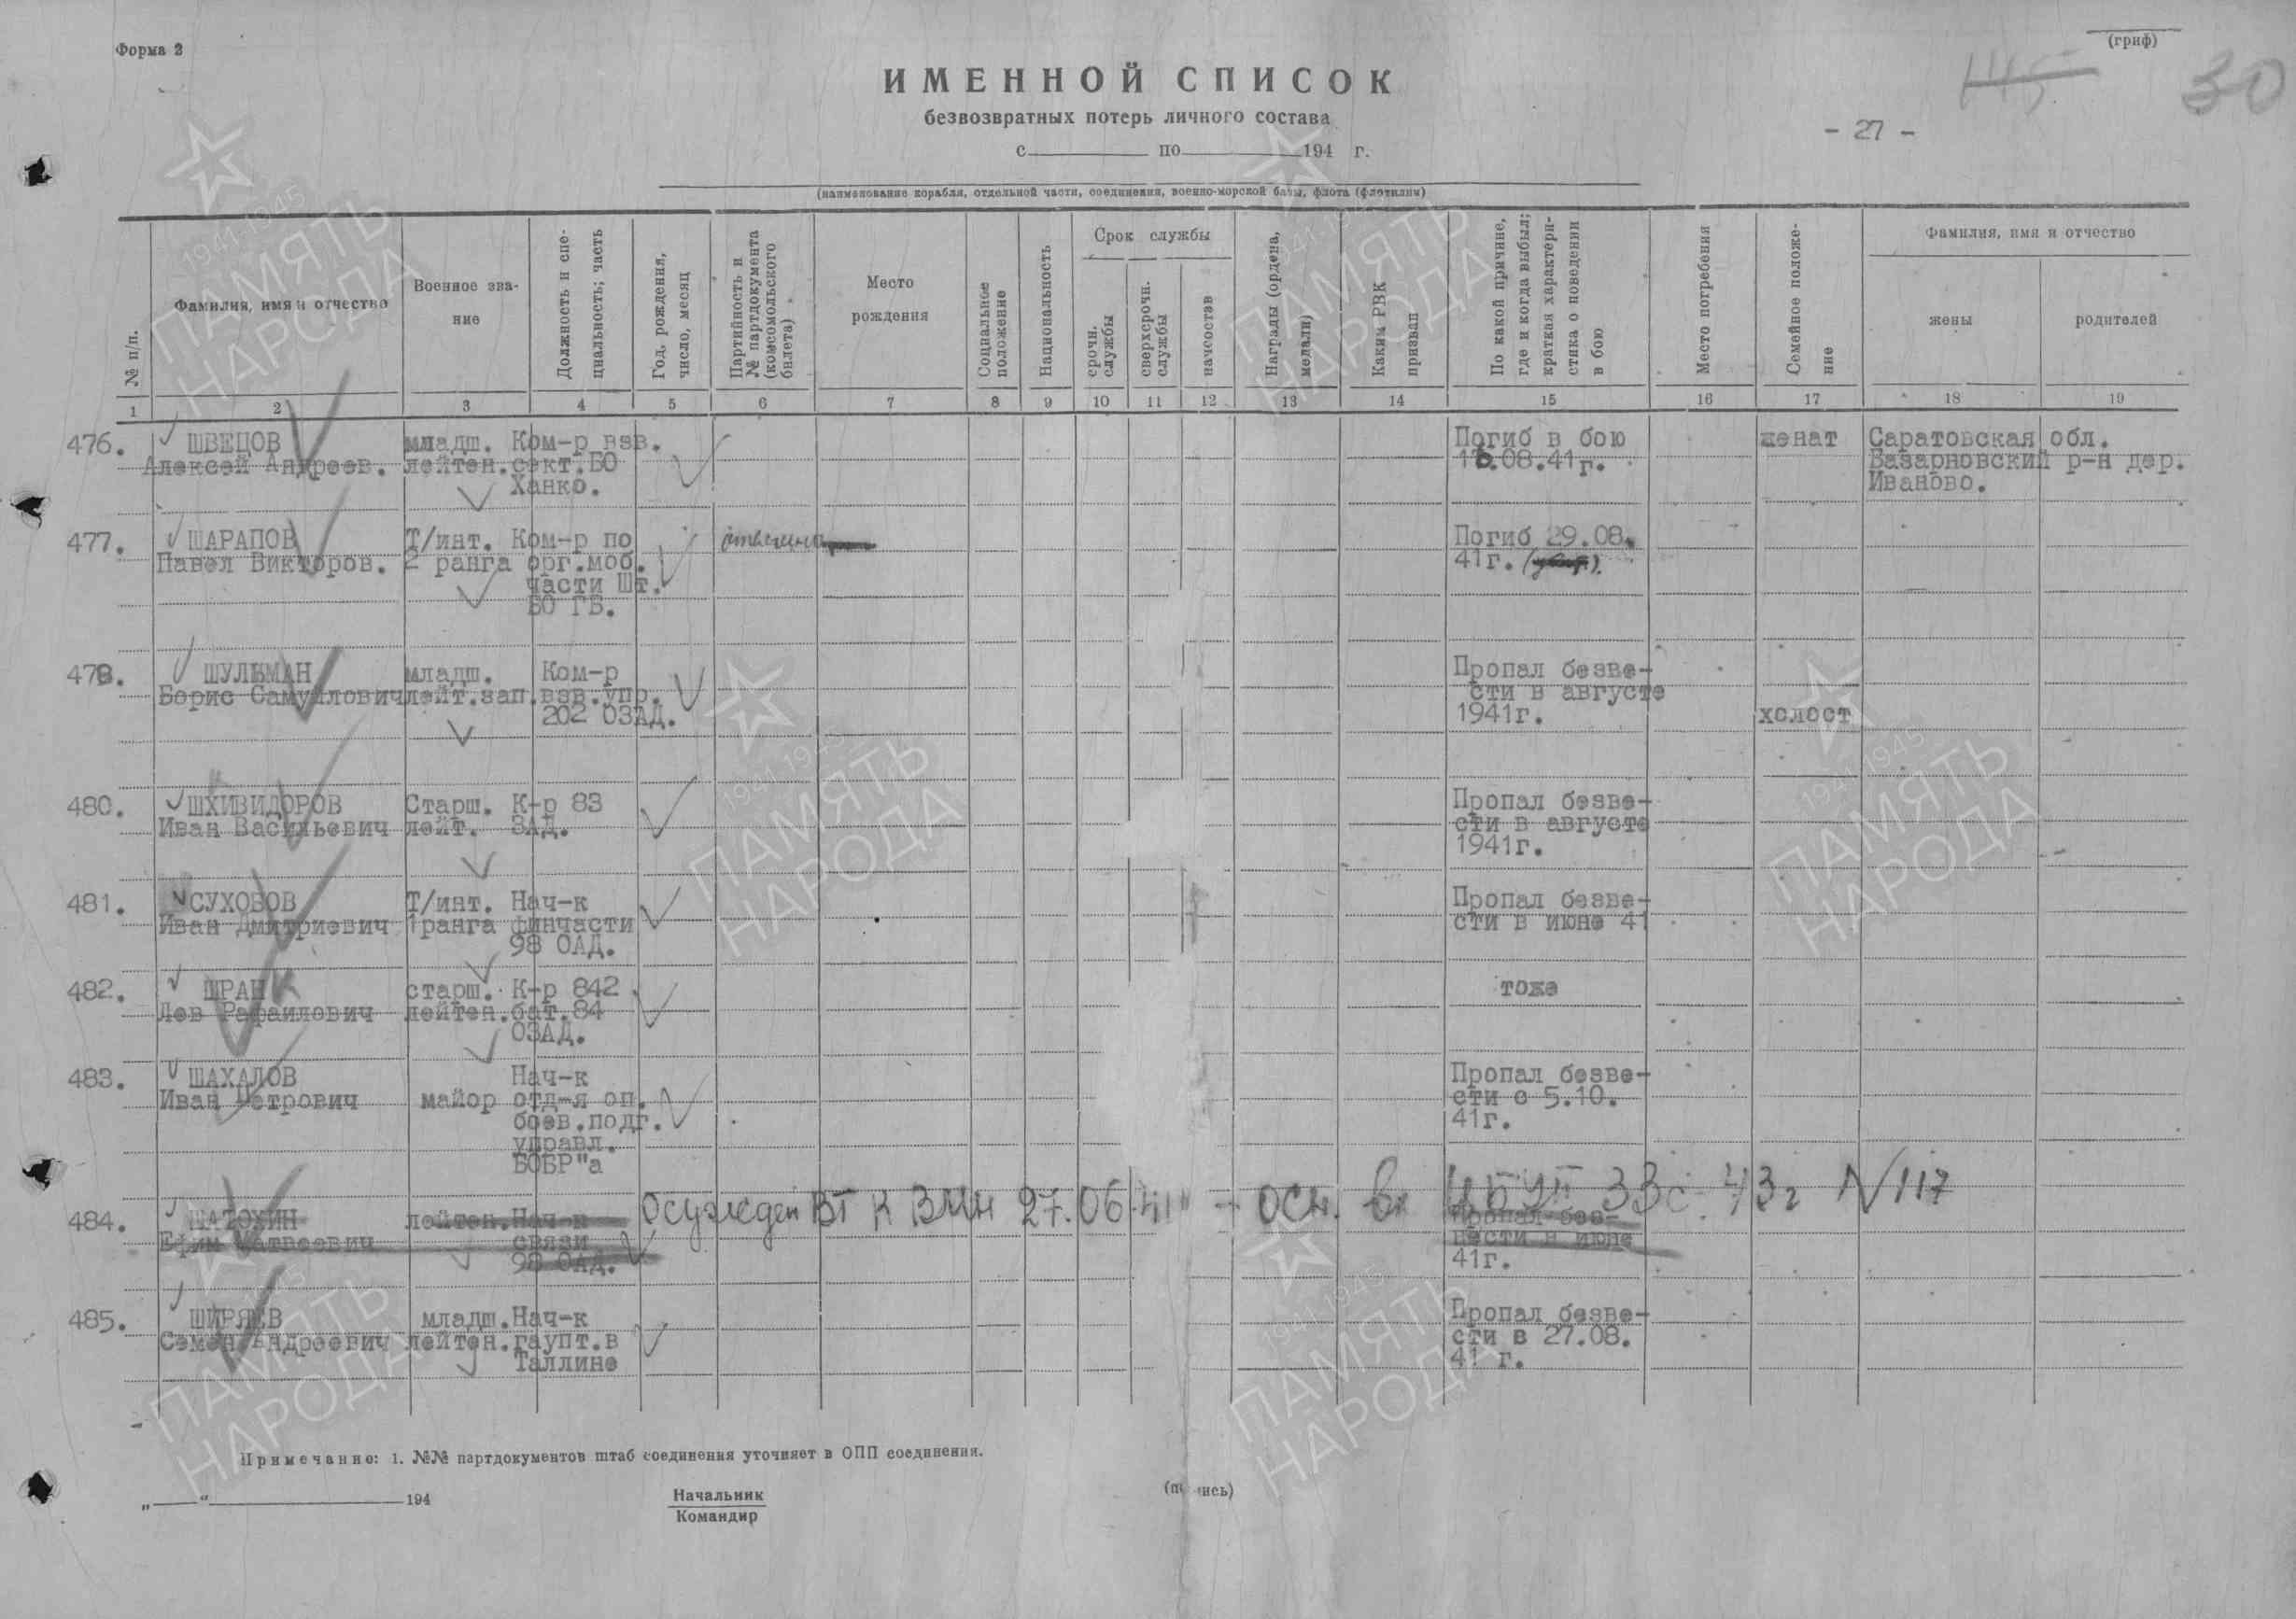 Форма 2
(гриф)
145
30
ИМЕННОЙ СПИСОК
безвозвратных потерь личного состава
- 27 -
с по 194 г.
(наименование корабля, отдельной части, соединения, военно-морской базы, флота (флотилии)
№ п/п.
Фамилия, имя и отчество
Военное зва-
ние
Должность и спе-
циальность; часть
Год, рождения,
число, месяц
Партийность и
№ партдокумента
(комсомольского
билета)
Место
рождения
Социальное
положение
Национальность
Срок службы
срочн.
службы
сверхсрочн.
службы
начсостав
Награды (ордена,
медали)
Каким РВК
призван
По какой причине,
где и когда выбыл;
краткая характери-
стика о поведении
в бою
Место погребения
Семейное положе-
ние
Фамилия, имя и отчество
жены
родителей
1 2 3 4 5 6 7 8 9 10 11 12 13 14 15 16 17 18 19
476. ШВЕЦОВ младш. Ком-р взв. Погиб в бою женат Саратовская обл.
Алексей Андреев. лейтен. сект.БО 16.08.41г. Базарновский р-н дер.
Ханко. Иваново.
477. ШАРАПОВ Т/инт. Ком-р по Погиб 29.08.
Павел Викторов. 2 ранга орг.моб. 41г.
части Шт.
БО ГБ.
478. ШУЛЬМАН младш. Ком-р Пропал безве-
Борис Самуилович лейт.зап. взв.упр. сти в августе
202 ОЗАД. 1941г. холост
480. ШХИВИДОРОВ Старш. К-р 83 Пропал безве-
Иван Васильевич лейт. ЗАД. сти в августе
1941г.
481. СУХОВОВ Т/инт. Нач-к Пропал безве-
Иван Дмитриевич 1ранга финчасти сти в июне 41
98 ОАД.
482. ШРАЙ старш. К-р 842 тоже
Лев Рафаилович лейтен. бат.84
ОЗАД.
483. ШАХАЛОВ Нач-к Пропал безве-
Иван Петрович майор отд-я оп. сти с 5.10.
боев.подг. 41г.
управл.
БОБР"а
Осужден ВТ К ВМН 27.06.41 - осн. вх ЦБУП 33с 43г N 117
484. ШАТОХИН лейтен. Нач-к Пропал без-
Ефим Матвеевич связи вести в июне
98 ОАД. 41г.
485. ШИРЯЕВ младш. Нач-к Пропал безве-
Семен Андреевич лейтен. гаупт.в сти в 27.08.
Таллине 41 г.
Примечание: 1. №№ партдокументов штаб соединения уточняет в ОПП соединения.
„ “ 194
Начальник
Командир
ПАМЯТЬ
НАРОДА
1941-1945